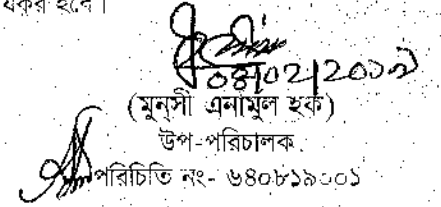 যকর হবে।
০৪/০2/2০১৯
(মুন্সী এনামুল হক)
উপ-পরিচালক
পরিচিতি নং- ৬৪০৮১৯০০১